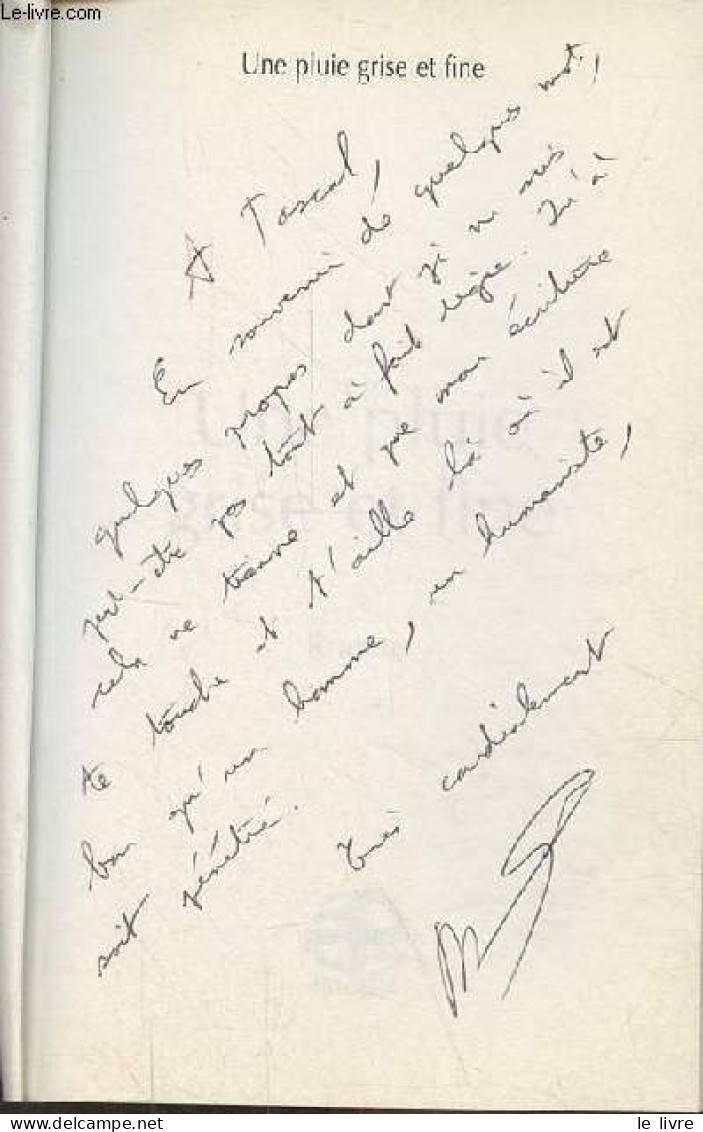 Le-livre.com
Une pluie grise et fine
A Pascal,
En souvenir de quelques mots,
quelques propos dont je ne suis
peut-être pas tout à fait digne. Qu'à
cela ne tienne et que mon écriture
te touche et t'aille là où il est
bon qu'un homme, un humaniste,
soit pénétré.
Très cordialement
Une pluie
grise et fine
le livre